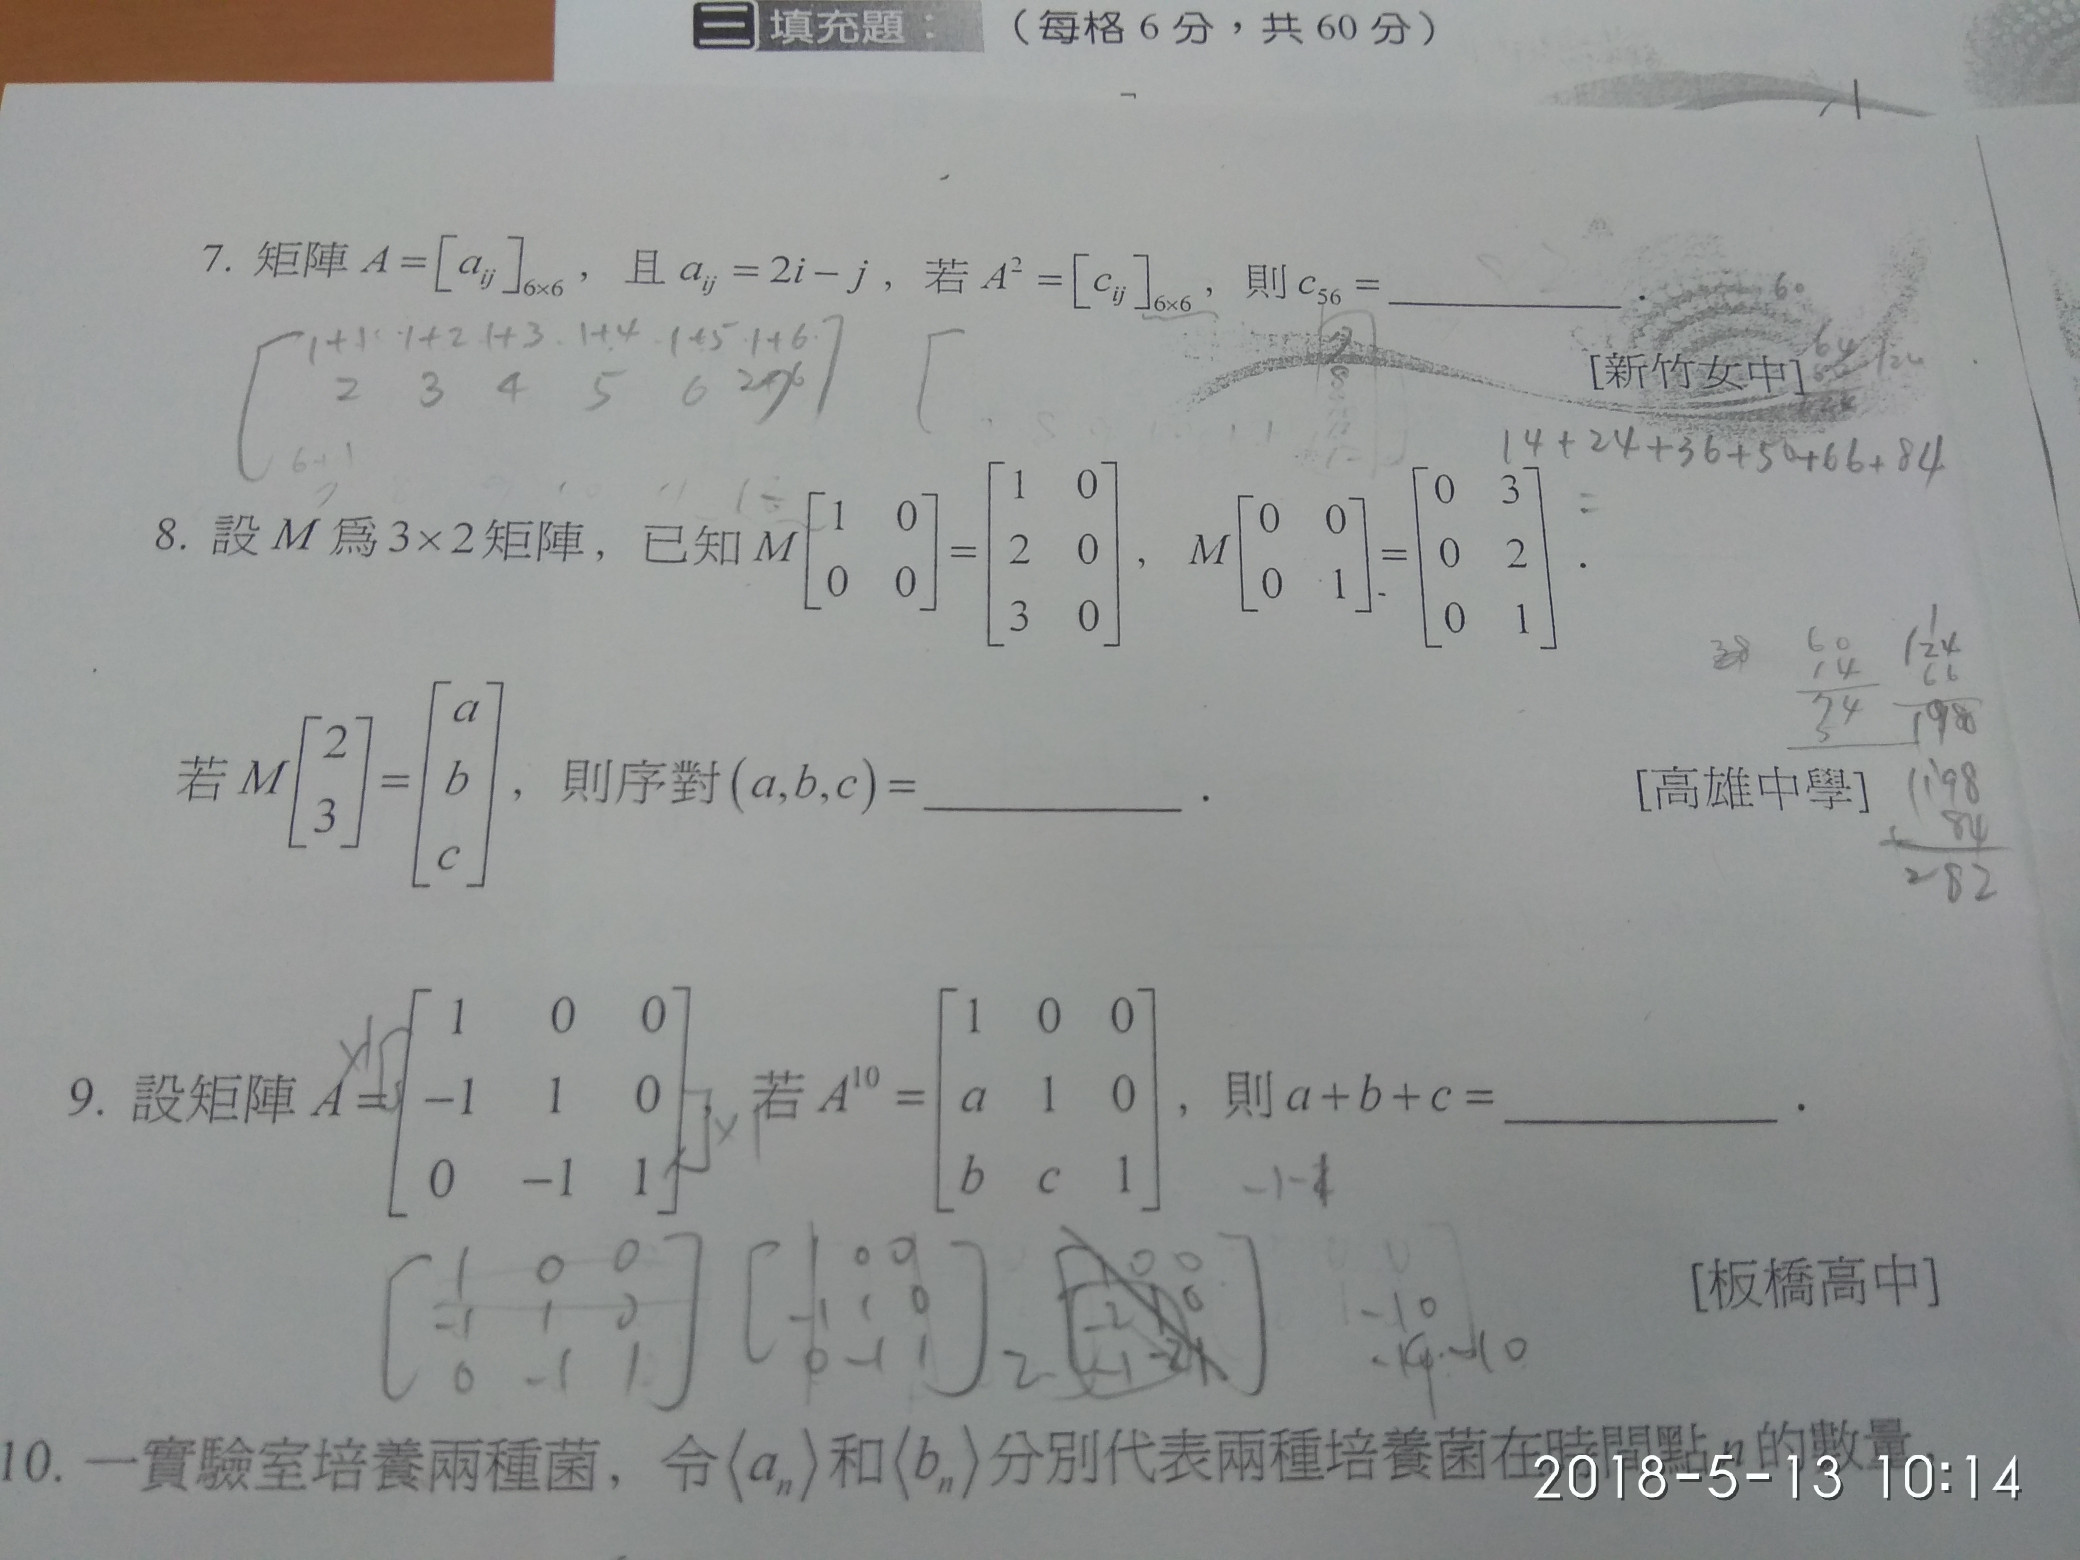 三 填充題：（每格 6 分，共 60 分）
7. 矩陣 A = [a_ij]_6×6，且 a_ij = 2i − j，若 A² = [c_ij]_6×6，則 c_56 = ________．
[新竹女中]
1+1 1+2 1+3 1+4 1+5 1+6
2 3 4 5 6
14+24+36+50+66+84
=
8. 設 M 為 3×2 矩陣，已知 M [1 0; 0 0] = [1 0; 2 0; 3 0]，M [0 0; 0 1] = [0 3; 0 2; 0 1]．
若 M [2; 3] = [a; b; c]，則序對 (a,b,c) = ________．
[高雄中學]
60 124
14 66
74 198
198
+ 84
282
9. 設矩陣 A = [1 0 0; −1 1 0; 0 −1 1]，若 A¹⁰ = [1 0 0; a 1 0; b c 1]，則 a+b+c = ________．
[板橋高中]
1 0 0 1 0 0
-1 1 0 -1 1 0
0 -1 1 0 -1 1
10. 一實驗室培養兩種菌，令⟨a_n⟩和⟨b_n⟩分別代表兩種培養菌在時間點 n 的數量，
2018-5-13 10:14